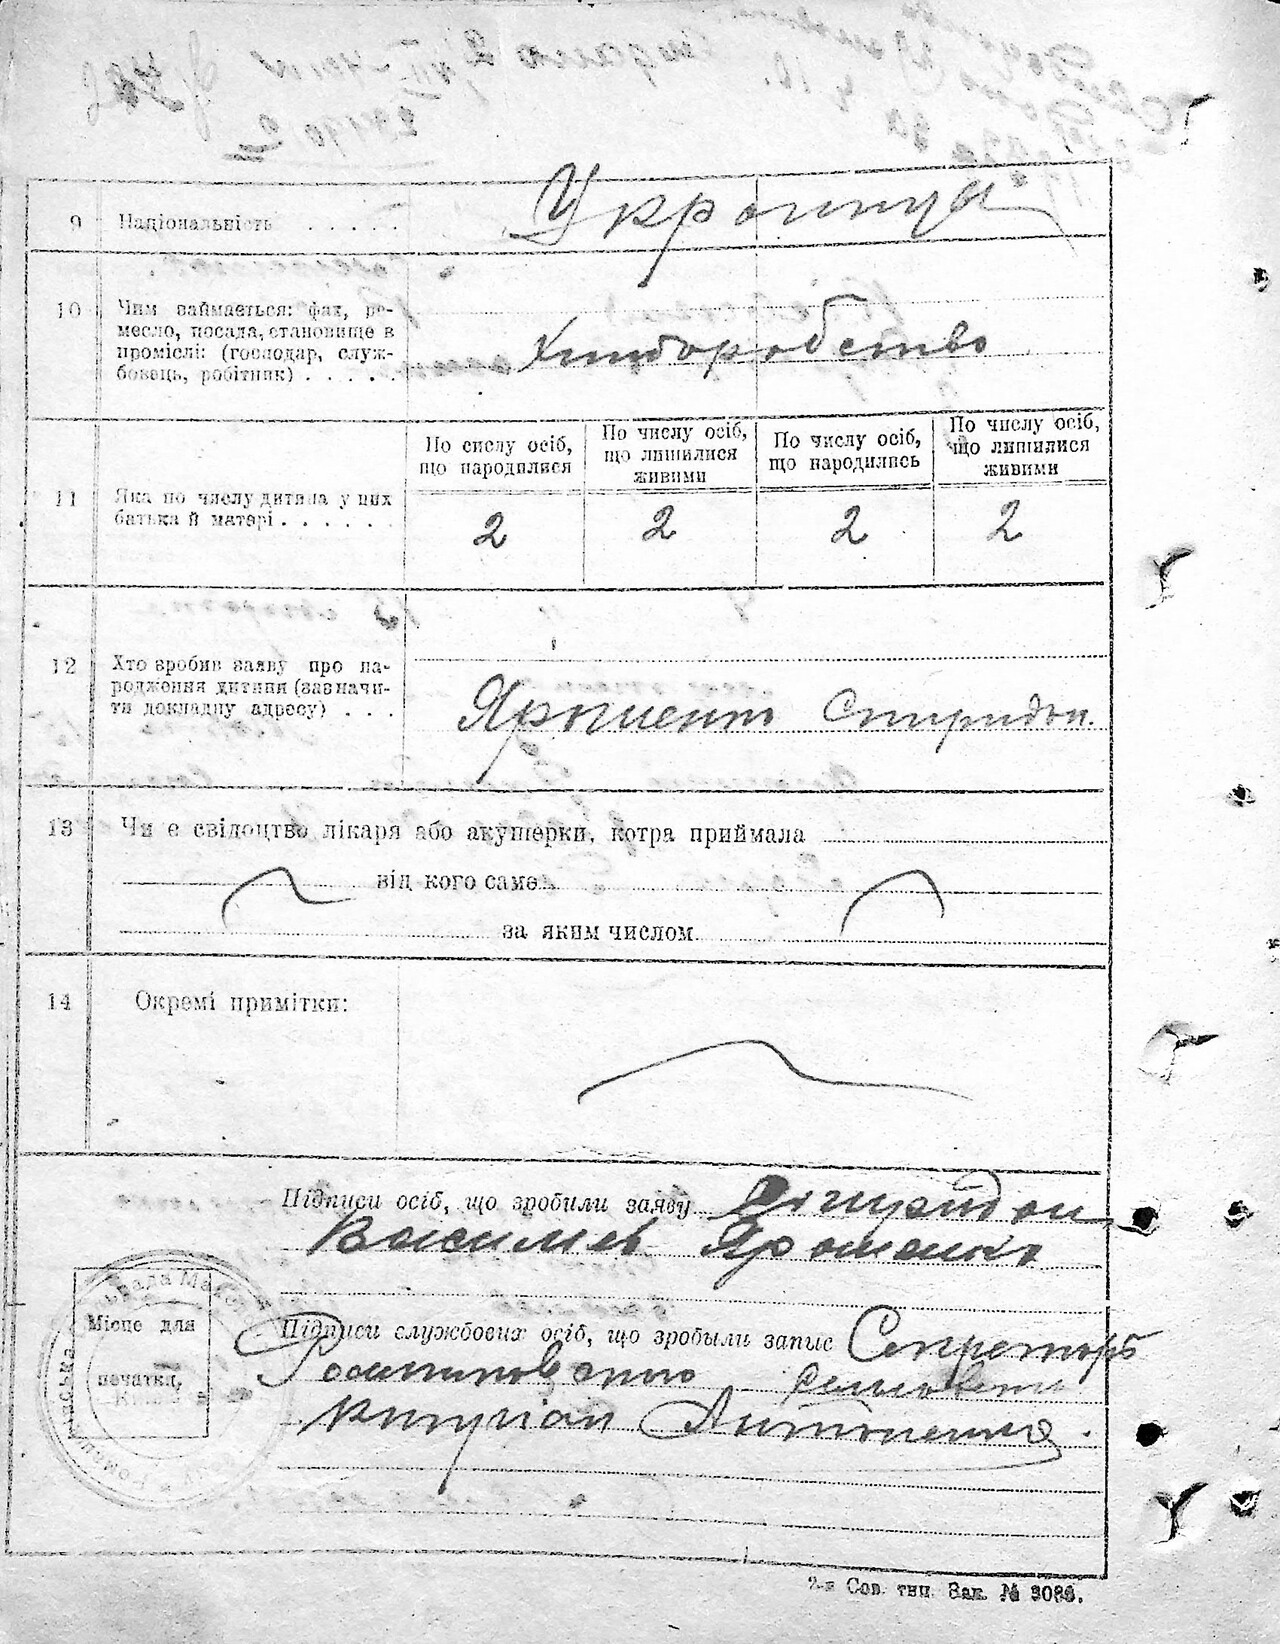 9 Національність . . . . .
Українці
10 Чим займається: фах, ре-
месло, посада, становище в
промислі: (господар, служ-
бовець, робітник) . . . . .
Хлиборобство
По числу осіб,
що народилися
По числу осіб,
що лишилися
живими
По числу осіб,
що народились
По числу осіб,
що лишилися
живими
11 Яка по числу дитина у цих
батька й матері . . . . . .
2 2 2 2
12 Хто зробив заяву про на-
родження дитини (зазначи-
ти докладну адресу) . . .
Ярошенко Спиридон.
13 Чи є свідоцтво лікаря або акушерки, котра приймала
від кого саме
за яким числом
14 Окремі примітки:
Підписи осіб, що зробили заяву Спиридон
Васильев Ярошенко
Місце для
печатки,
Підписи службових осіб, що зробыли запис Секретарь
сельсовета
Антоненко.
2-я Сов. тип. Зак. № 3086.